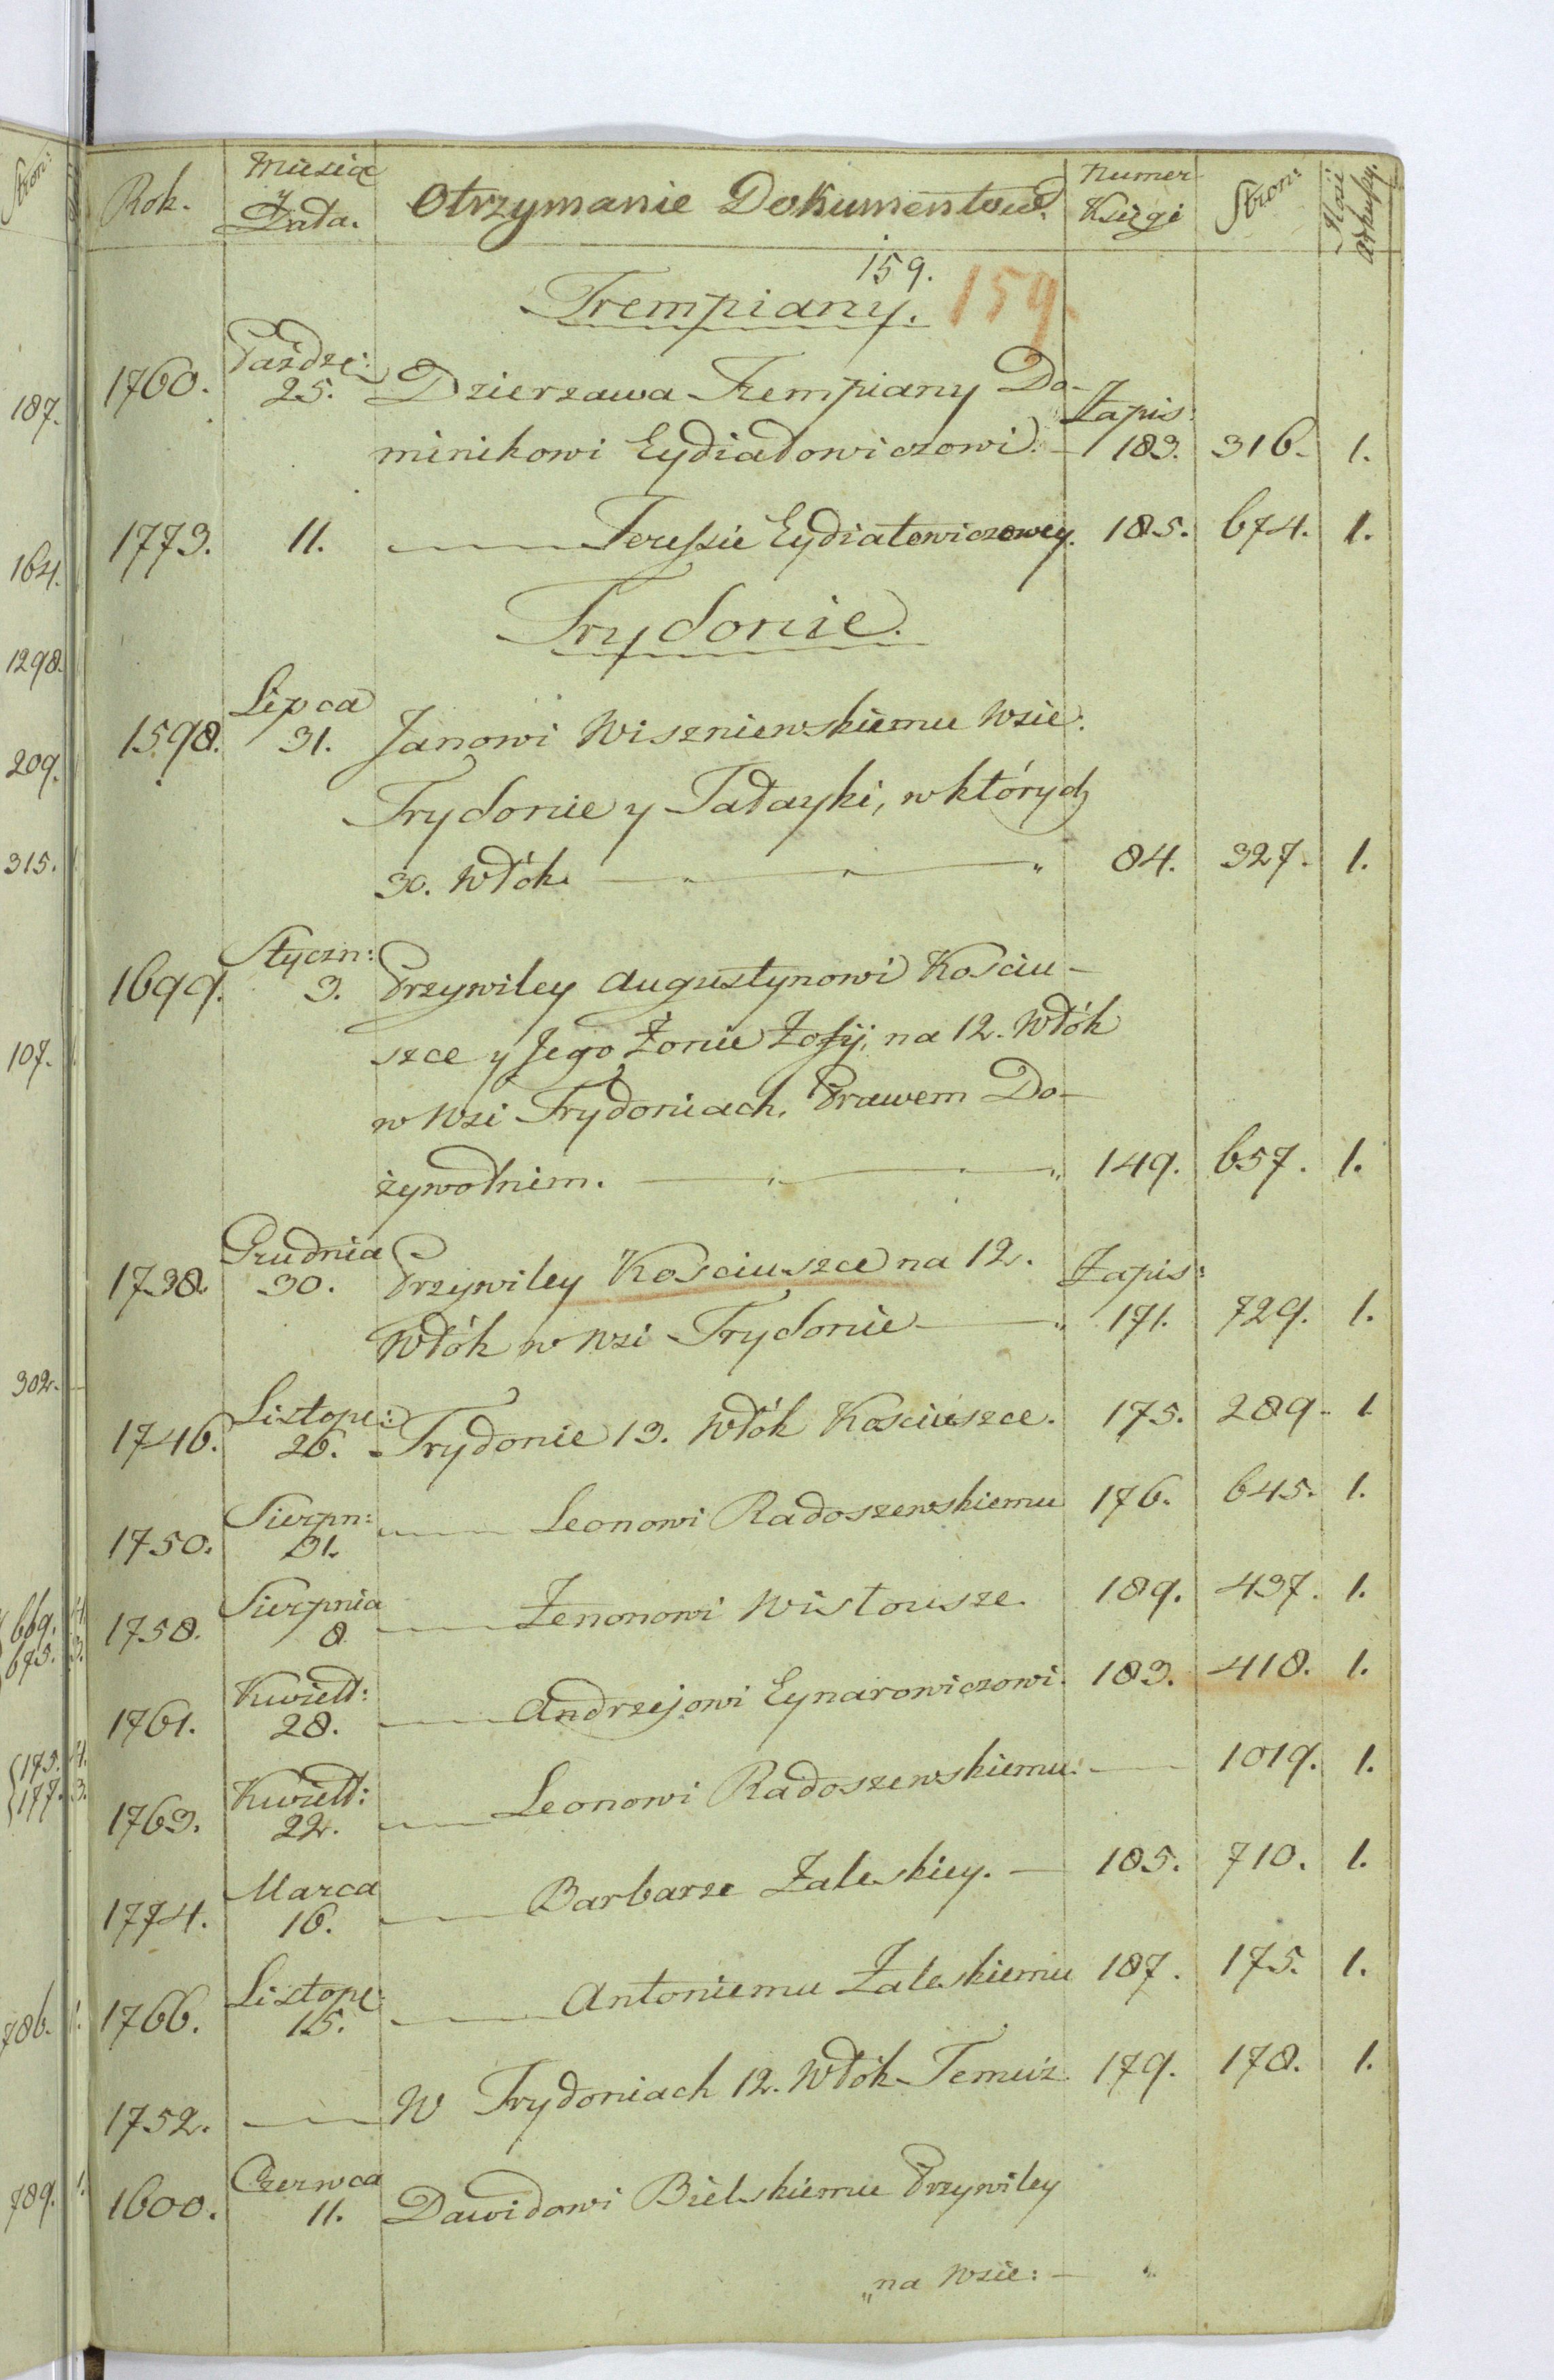 Rok. Miesiąc y Data. Otrzymanie Dokumentow. Numer Księgi Stron: Ilość arkuszy.
159. 159
Trempiany.
1760. Paźdze: 25. Dzierzawa Trempiany Do-
minikowi Eydiatowiczowi. - Zapis: 183. 316. 1.
1773. 11. Teressie Eydiatowiczowey. 185. 674. 1.
Trydonie.
1598. Lipca 31. Janowi Wiszniewskiemu Wsie:
Trydonie y Tatayki, w których
30. Włók. 84. 327. 1.
1699. Styczn: 3. Przywiley Augustynowi Kościu-
szce y Jego Żonie Zofij, na 12. Włók
w Wsi Trydoniach, Prawem Do-
żywotnim. 149. 657. 1.
1738. Grudnia 30. Przywiley Kościuszce na 12.
Włók w Wsi Trydonie Zapis: 171. 729. 1.
1746. Listope: 26. Trydonie 13. Włók Kościuszce. 175. 289. 1
1750. Sierpn: 31. Leonowi Radoszewskiemu 176. 645. 1.
1758. Sierpnia 8 Zenonowi Wistousze. 189. 437. 1.
1761. Kwiet: 28. Andrzejowi Eynarowiczowi. 183. 418. 1.
1763. Kwiet: 22. Leonowi Radoszewskiemu. 1019. 1.
1774. Marca 16. Barbarze Zaleskiey. 185. 710. 1.
1766. Listope: 15. Antoniemu Zaleskiemu 187. 175. 1.
1752. W Trydoniach 12. Włók Temuż 179. 178. 1.
1600. Czerwca 11. Dawidowi Bielskiemu Przywiley
„na Wsie:
Stron:
187.
164.
1298.
209.
315.
107.
302.
669.
675. 3.
175.
177. 3.
786. 1.
789. 1.